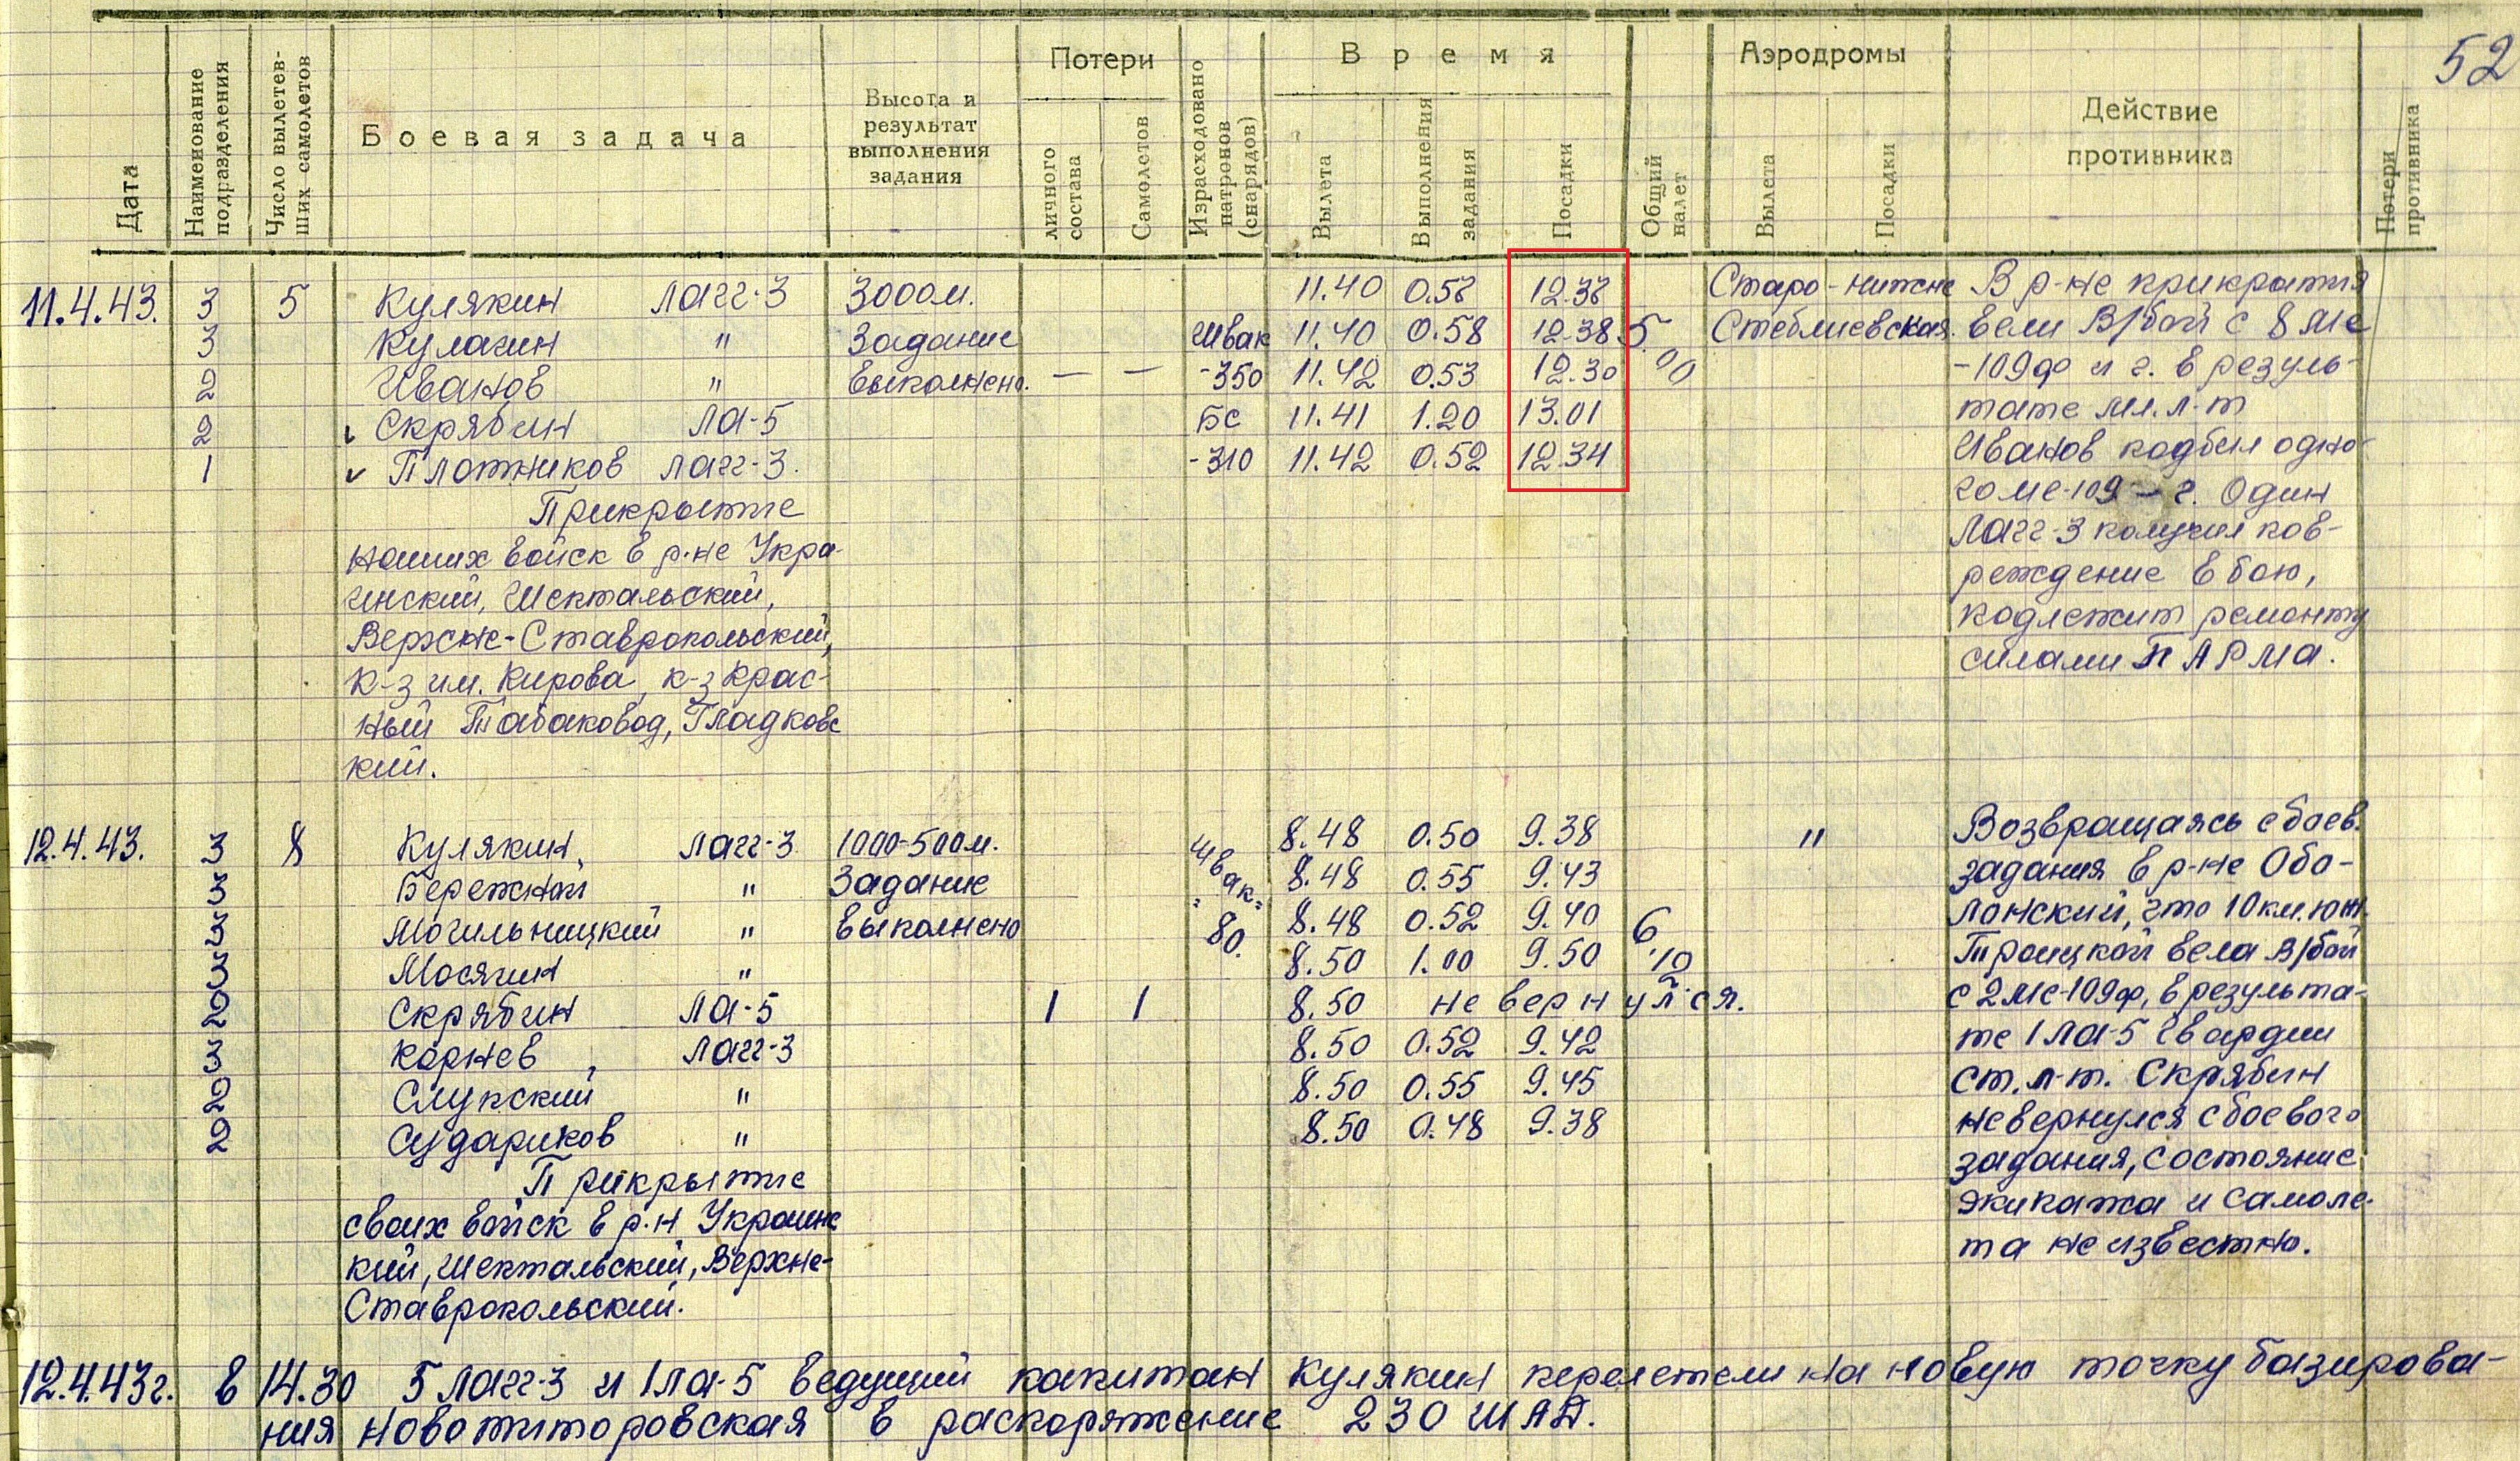 52
Дата
Наименование подразделения
Число вылетев-ших самолетов
Боевая задача
Высота и результат выполнения задания
Потери
личного состава
Самолетов
Израсходовано патронов (снарядов)
Время
Вылета
Выполнения задания
Посадки
Общий налет
Аэродромы
Вылета
Посадки
Действие противника
Потери противника
11.4.43. 3 5 Кулякин Лагг-3 3000м. 11.40 0.58 12.38 Старо-нижне В р-не прикрытия
3 Кулагин " Задание Швак 11.40 0.58 12.38 5 Стеблиевская. вели В/бой с 8 Ме
2 Иванов " выполнено. — — -350 11.42 0.53 12.30 00 -109ф и г. в резуль-
2 Скрябин Ла-5 БС 11.41 1.20 13.01 тате мл. л-т
1 Плотников Лагг-3. -310 11.42 0.52 12.34 Иванов подбил одно-
Прикрытие го ме-109-г. Один
наших войск в р-не Укра- Лагг-3 получил пов-
инский, Шептальский, реждение в бою,
Верхне-Ставропольский, подлежит ремонту
к-з им. Кирова, к-з Крас- силами ПАРМа.
ный Табаковод, Гладковс
кий.
12.4.43. 3 8 Кулякин, Лагг-3 1000-500м. Швак= 8.48 0.50 9.38 " Возвращаясь с боев.
3 Бережной " Задание 8.48 0.55 9.43 задания в р-не Обо-
3 Могильницкий " выполнено 80. 8.48 0.52 9.40 6 лонский, что 10 км. юж.
3 Мосягин " 8.50 1.00 9.50 12 Троицкой вела В/бой
2 Скрябин Ла-5 1 1 8.50 не вернулся. с 2 Ме-109ф, в результа-
3 Корнев, Лагг-3 8.50 0.52 9.42 те 1 Ла-5 гвардии
2 Слупский " 8.50 0.55 9.45 ст. л-т. Скрябин
2 Судариков " 8.50 0.48 9.38 не вернулся с боевого
Прикрытие задания, состояние
своих войск в р-н Украинс экипажа и самоле-
кий, Шептальский, Верхне- та не известно.
Ставропольский.
12.4.43г. в 14.30 5 Лагг-3 и 1 Ла-5 ведущий капитан Кулякин перелетели на новую точку базирова-
ния Новотиторовская в распоряжение 230 ШАД.